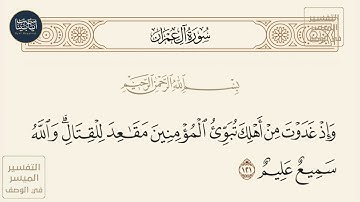 سُورَةُ آلِ عِمْرَانَ
بِسْمِ اللَّهِ الرَّحْمَٰنِ الرَّحِيمِ
وَإِذْ غَدَوْتَ مِنْ أَهْلِكَ تُبَوِّئُ الْمُؤْمِنِينَ مَقَاعِدَ لِلْقِتَالِ ۗ وَاللَّهُ
سَمِيعٌ عَلِيمٌ ١٢١
التفسير
الميسر
في الوصف
التفسير
الميسر
في الوصف